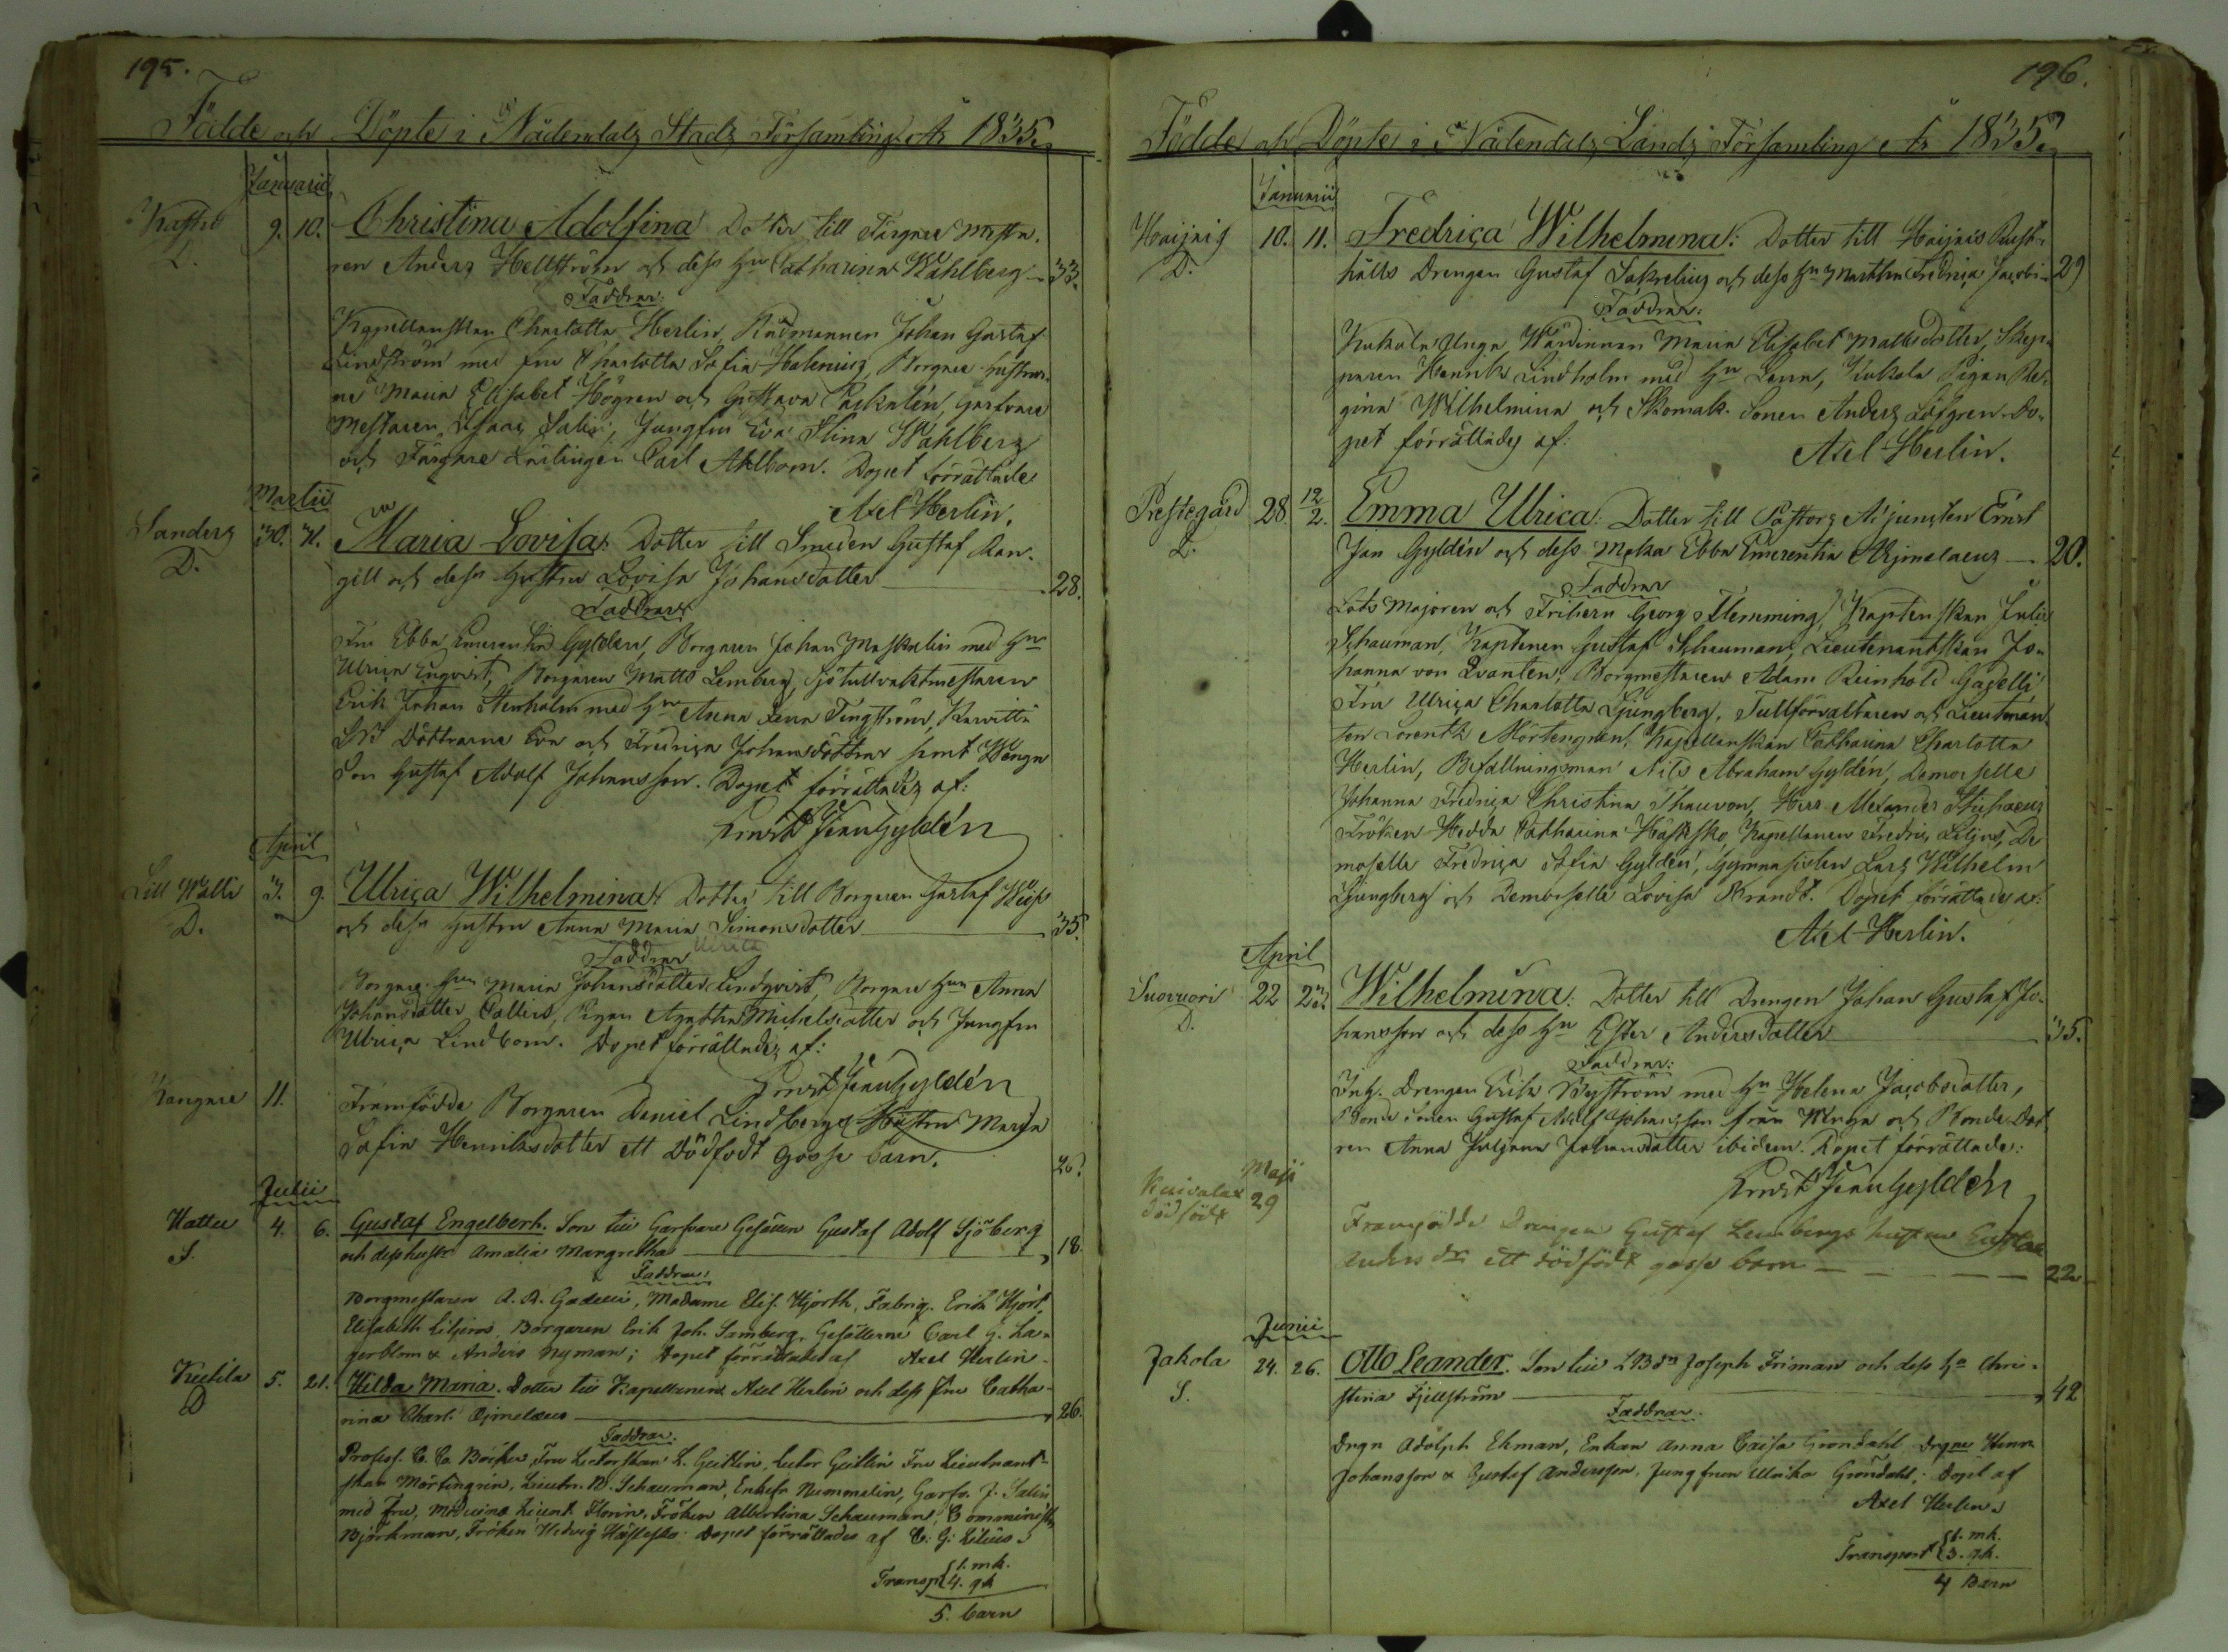 195.
Födde och Döpte i Nådendals Stads Församling År 1835.
Januarii
9. 10. Christina Adolfina Dotter till Färgare Mästa-
D. ren Anders Hellström och dess Hu Catharina Wahlberg 33.
Faddrar:
Kapellanskan Charlotta Herlin, Rådmannen Johan Gustaf
Lindström med fru Charlotta Sofia Halenius, Borgare hustrur-
na Maria Elisabet Högren och Gustava, Garfvare
Mästaren Isaac Salin, Jungfru Eva Stina Wahlberg
och Färgare Lärlingen Carl Ahlbom. Dopet förrättade
Axel Herlin.
Martii
Sanders 30. 31. Maria Lovisa: Dotter till Smeden Gustaf Ran-
D. gill och dess Hustru Lovisa Johansdotter 28.
Faddrar
Fru Ebba Emerentia Gyldén, Borgaren Johan Maskulin med Hu
Ulrica Enqvist, Borgaren Matts Lemberg, Sjötullvaktmästaren
Erik Johan Stenholm med Hu Anna Lena Tingström,
Döttrarna Eva och Fredrica Johansdöttrar samt
Son Gustaf Adolf Johansson. Dopet förrättades af:
Ernst Jean Gyldén
April
Lill Wälli 3. 9. Ulrica Wilhelmina: Dotter till Borgaren Gustaf
D. och dess Hustru Anna Maria Simonsdotter 35.
Faddrar
Borgare Hun Maria Johansdotter Lindqvist, Borgare Hun Anna
Johansdotter, Pigan Agatha Michelsdotter och Jungfru
Ulrica Lindbom. Dopet förrättades af:
Ernst Jean Gyldén
Kangare 11. Framfödde Borgaren Daniel Lindbergs Hustru Maria
Sofia Henriksdotter ett Dödfödt gosse barn. 26.
Julii
Hattu 4. 6. Gustaf Engelberh. Son till Garfvare Gesällen Gustaf Adolf Sjöberg
S. och dess hustr Amalia Margretha 18.
Faddrar:
Borgmestaren A. R. Gadelli, Madame Elis. Hjorth, Fabriq. Erik Hjort,
Elisabeth Liljeros, Borgaren Erik Joh. Lemberg, Gesällerne Carl G. La-
gerblom & Anders Nyman; Dopet förrättades af Axel Herlin
5. 21. Hilda Maria. Dotter till Kapellanen Axel Herlin och dess fru Catha-
D rina Charl. Ajmelæus 26.
Faddrar.
Profess. C. G. Fru Lectorskan L. Geitlin, Lector Geitlin Fru Lieutnant-
skan Mörtengren, Lieutn. B. Schauman, Enkefr Nummelin, Garfv. J. Salin
med Fru, Medicinæ Licent. Florin, Fröken Albertina Schauman,
Björkman, Fröken Hedvig Hästesko. Dopet förrättades af C. G. Lilius.
Transp. 1. mk.
4. qk
5. barn
196.
Födde och Döpte i Nådendals Lands Församling År 1835.
Januarii
Haijais 10. 11. Fredrica Wilhelmina: Dotter till Haijais Rust-
D. hålls Drengen Gustaf och dess Hu Martha Fredrica 29
Faddrar:
Wärdinnan Maria Elisabet Mattsdotter, Skep-
paren Henrik Lindholm med Hu Lena, Kukola Pigan Re-
gina Wilhelmina och Skomak. Sonen Anders Löfgren. Do-
pet förrättades af:
Axel Herlin.
Prestegård 28. 12/2. Emma Ulrica: Dotter till Pastors Adjuncten Ernst
Jan Gyldén och dess Maka Ebba Emerentia Ajmelaeus 20.
Faddrar
Lots Majoren och Friherrn Georg Flemming, Kaptenskan Julie
Schauman, Kaptenen Gustaf Schauman, Lieutenantskan Jo-
hanna von Qvanten, Borgmestaren Adam Reinhold Gadelli,
Fru Ulrica Charlotta Ljungberg, Tullförvaltaren och Lieutnan-
ten Lorentz Mörtengren, Kapellanskan Catharina Charlotta
Herlin, Befallningsman Nils Abraham Gyldén, Demoiselle
Johanna Fredrica Christina Thauvon, Herr Alexander
Fröken Hedda Catharina Hästesko, Kapellanen Fredric Lilius, De-
moiselle Fredrica Sofia Gyldén, Gymnasisten Lars Wilhelm
Ljungberg och Demoiselle Lovisa Brandt. Dopet förrättades af:
Axel Herlin.
April
Suovuori 22 23. Wilhelmina: Dotter till Drengen Johan Gustaf Jo-
D. hansson och dess Hu Ester Andersdotter 35.
Faddrar:
Drengen Erik Byström med Hu Helena Jacobsdotter,
Bonde sonen Gustaf Adolf Johansson från och Bonde Dot-
ren Anna Juliana Johansdotter ibidem. Dopet förrättade:
Ernst Jean Gyldén
Maji
Kuivalax 29
dödfödt Framfödde Drängen Gustaf Lembergs hustru
Anders dr ett dödfödt gosse barn 22
Junii
Jakola 24. 26. Otto Leander. Son till Joseph Friman och dess Ha Chri-
S. stina Fjellström 42
Faddrar.
Drgn Adolph Ekman, Enkan Anna Caisa Gröndahl, Drgne Henr.
Johansson & Gustaf Andersson, Jungfrun Ulrika Gröndahl; Dopet af
Axel Herlin.
Transport 1. mk.
3. qk.
4 Barn